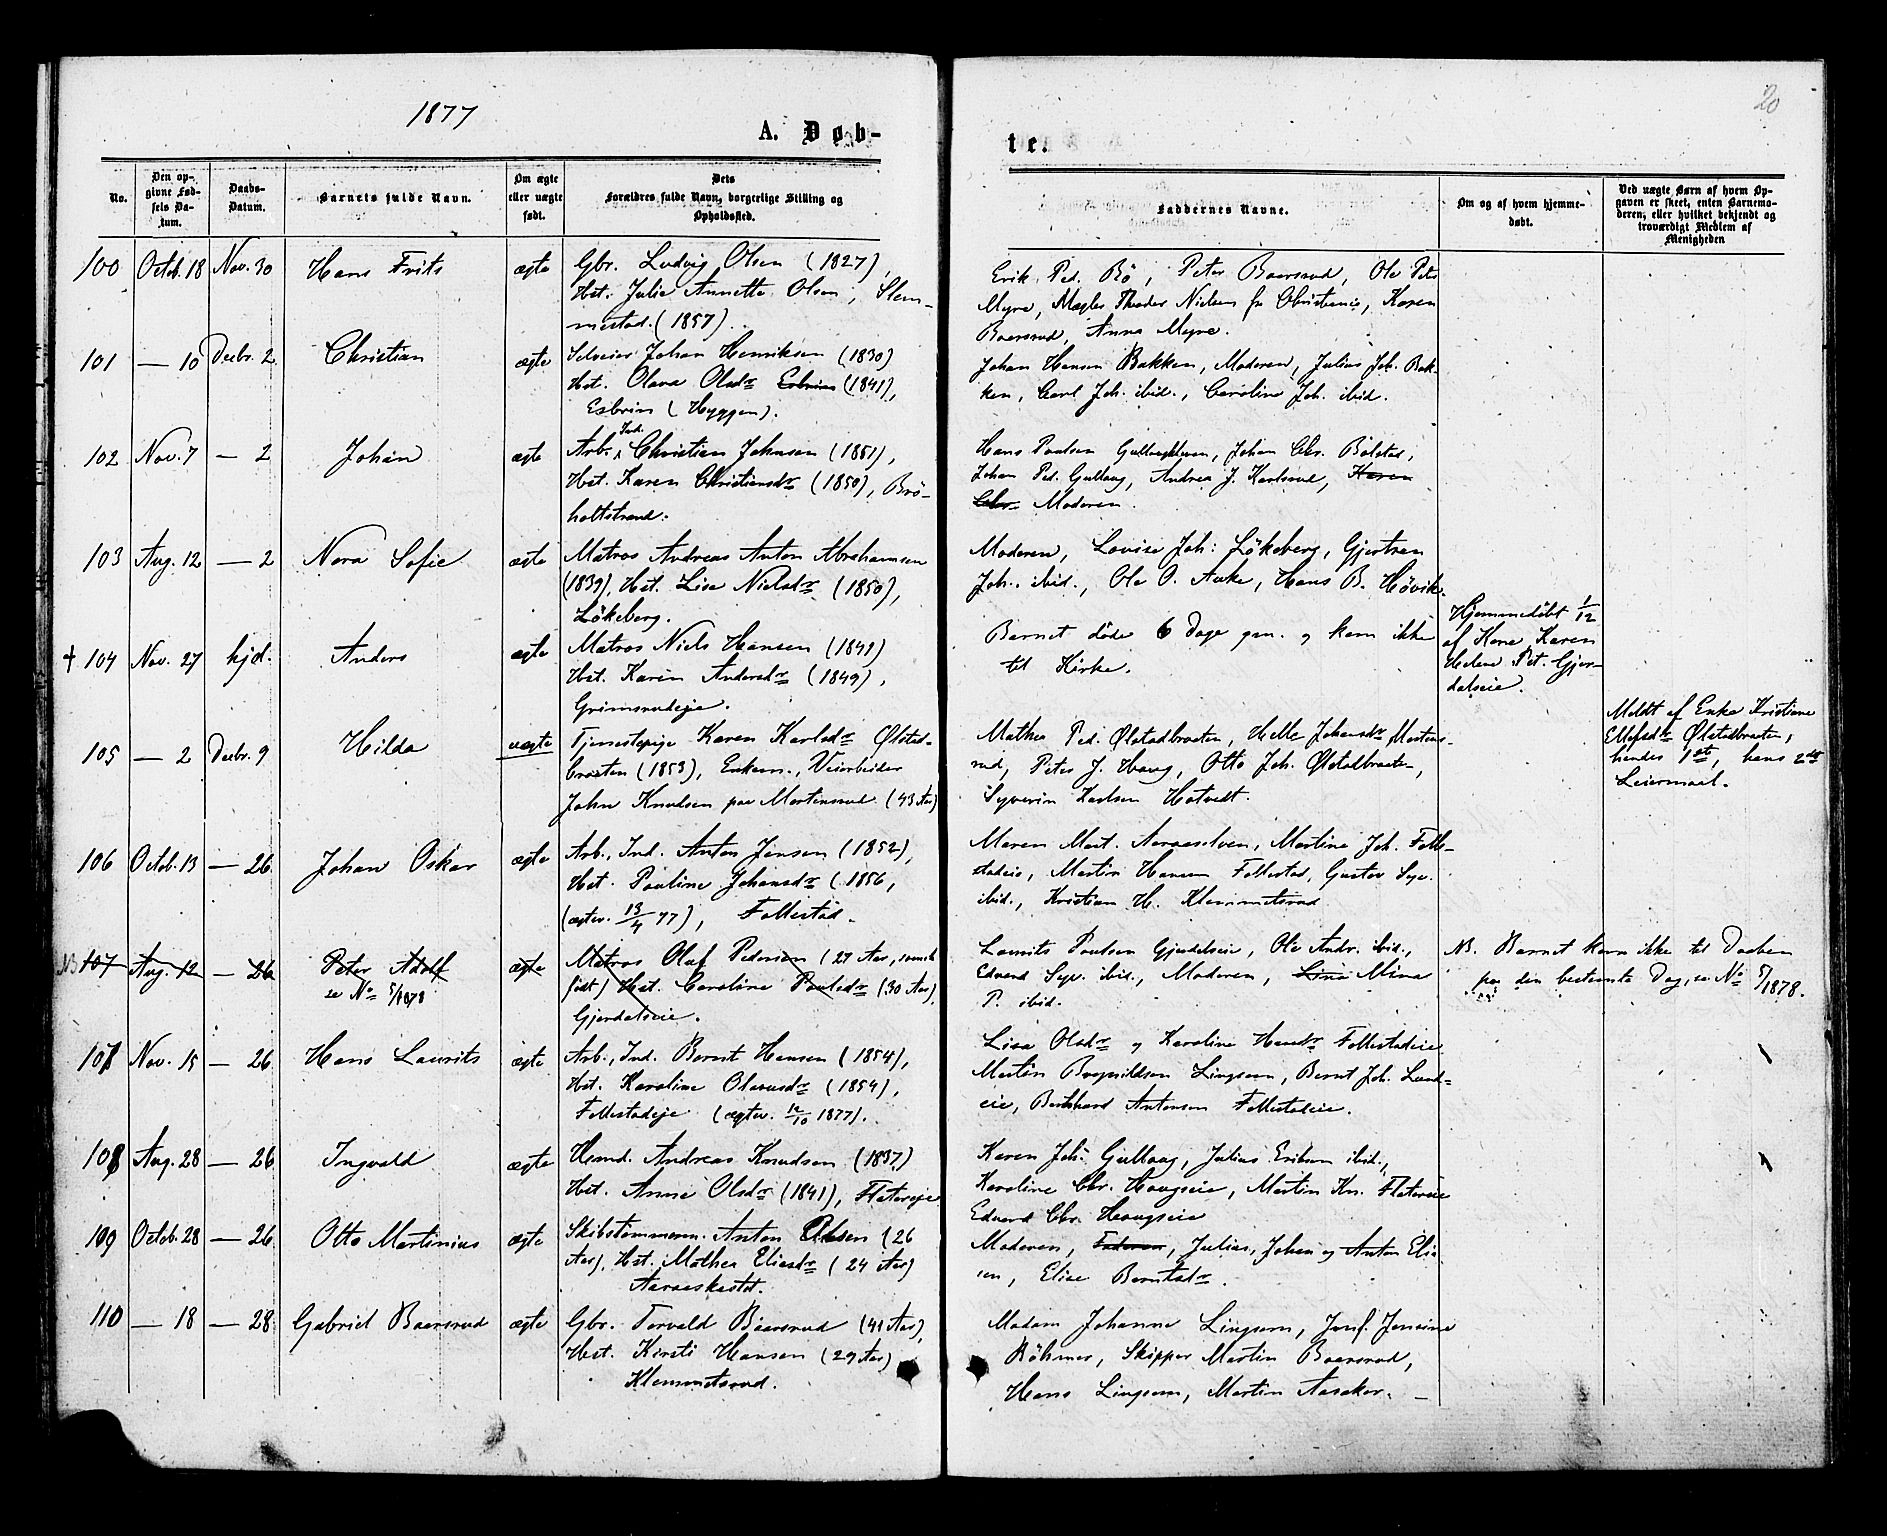 1877
20
A. Døb-
te.
No.
Den op-
givne Fød-
sels Da-
tum.
Daabs-
Datum.
Barnets fulde Navn.
Om ægte
eller uægte
født.
Dets
Forældres fulde Navn, borgerlige Stilling og
Opholdssted.
Faddernes Navne.
Om og af hvem hjemme-
døbt.
Ved uægte Børn af hvem Op-
gaven er skeet, enten Barnemo-
deren, eller hvilket bekjendt og
troværdigt Medlem af
Menigheden
100 Octob. 18 Nov. 30 Hans Frits ægte Gbr. Ludvig Olsen (1827),
Hst. Julie Annette Olsen, Slem-
mestad. (1857).
Erik Ped. Bø, Peter Baarsrud, Ole Peter
Myre, Mægler Theodor Nielsen fra Christiania, Karen
Baarsrud, Anna Myre.
101 — 10 Decbr. 2 Christian ægte Selveier Johan Henriksen (1830)
Hst. Olava Olsdr Esbrim (1841),
Esbrim (Hyggen).
Johan Hansen Bakken, Moderen, Julius Joh. Bak-
ken, Carl Joh. ibid., Caroline Joh. ibid.
102 Nov. 7 — 2 Johan ægte Arb. Ind. Christian Johnsen (1851),
Hst. Karen Christiansdr (1850), Brö-
holtstrand.
Hans Paulsen, Johan Chr. Bölstad,
Johan Ped. Gullaug, Andrea J. Karlsrud, Karen
Chr. Moderen.
103 Aug. 12 — 2 Nora Sofie ægte Matros Andreas Anton Abrahamsen
(1839), Hst. Lise Nielsdr (1850),
Lökeberg.
Moderen, Lovise Joh: Lökeberg, Gjertren
Joh. ibid., Ole O. Auke, Hans B. Hövik.
† 104 Nov. 27 hjd. Anders ægte Matros Niels Hansen (1842)
Hst. Karen Andersdr (1849),
Grimsrudeje.
Barnet döde 6 Dage gm. og kom ikke
til Kirke.
Hjemmedöbt 1/12
af Kone Karen
Helene Pet. Gjer-
dalseie.
105 — 2 Decbr. 9 Hilda uægte Tjenestepige Karen Karlsdr Ølstad-
braaten (1853), Enkem., Veiarbeider
John Knudsen paa Mortensrud (43 Aar)
Mathea Ped. Ølstadbraaten, Helle Johansdr Mortens-
rud, Peter J. Haug, Otto Joh. Ølstadbraaten,
Syverin Karlsen Hotvedt.
Meldt af Enke Kristiane
Ellefsdr Ølstadbraaten,
hendes 1ste, hans 2det
Leiermaal.
106 Octob. 13 — 26 Johan Oskar ægte Arb., Ind. Anton Jensen (1852),
Hst. Pauline Johansdr (1856,
(ægtev. 13/4 77), Follestad.
Maren Mart. Aaraaselven, Martine Joh. Folle-
stadeie, Martin Hansen Follestad, Gustav Syv.
ibid., Kristian H. Klemmetsrud
NB 107 Aug. 12 — 26 Peter Adolf ægte Matros Oluf Pedersen (27 Aar, svensk
se No 5/1878
født) Hst. Caroline Paulsdr (30 Aar),
Gjerdalseie.
Laurits Paulsen Gjerdalseie, Ole Andr. ibid.,
Edvard Syv. ibid., Moderen, Lina Mina
P. ibid.
NB. Barnet kom ikke til Daaben
paa den bestemte Dag, se No 5/1878.
107 Nov. 15 — 26 Hans Laurits ægte Arb., Ind. Bernt Hansen (1854),
Hst. Karoline Olavusdr (1854),
Follestadeje (ægtev. 12/10 1877).
Lisa Olsdr og Karoline Hansdr Follestadeie
Martin Bregnildsen Lingsom, Bernt Joh. Lund-
eie, Berthard Antonsen Follestadeie.
108 Aug. 28 — 26 Ingvald ægte Husmd. Andreas Knudsen (1837)
Hst. Anne Olsdr (1841), Flatereje
Karen Joh: Gullaug, Julius Eriksen ibid.,
Karoline Chr. Haugseie, Martin Kr. Flatereie
Edvard Chr. Haugseie
109 Octob. 28 — 26 Otto Martinius ægte Skibstömmerm. Anton Olsen (26
Aar), Hst. Mathea Eliasdr (24 Aar)
Moderen, Faderen, Julius, Johan og Anton Elia-
sen, Elise Berntsdr.
110 — 18 — 28 Gabriel Baarsrud ægte Gbr. Torvald Baarsrud (41 Aar),
Hst. Kirsti Hansen (29 Aar)
Klemmetsrud.
Madam Johanne Lingsom, Jomf. Jensine
Böhmer, Skipper Martin Baarsrud,
Hans Lingsom, Martin Aasaker. —